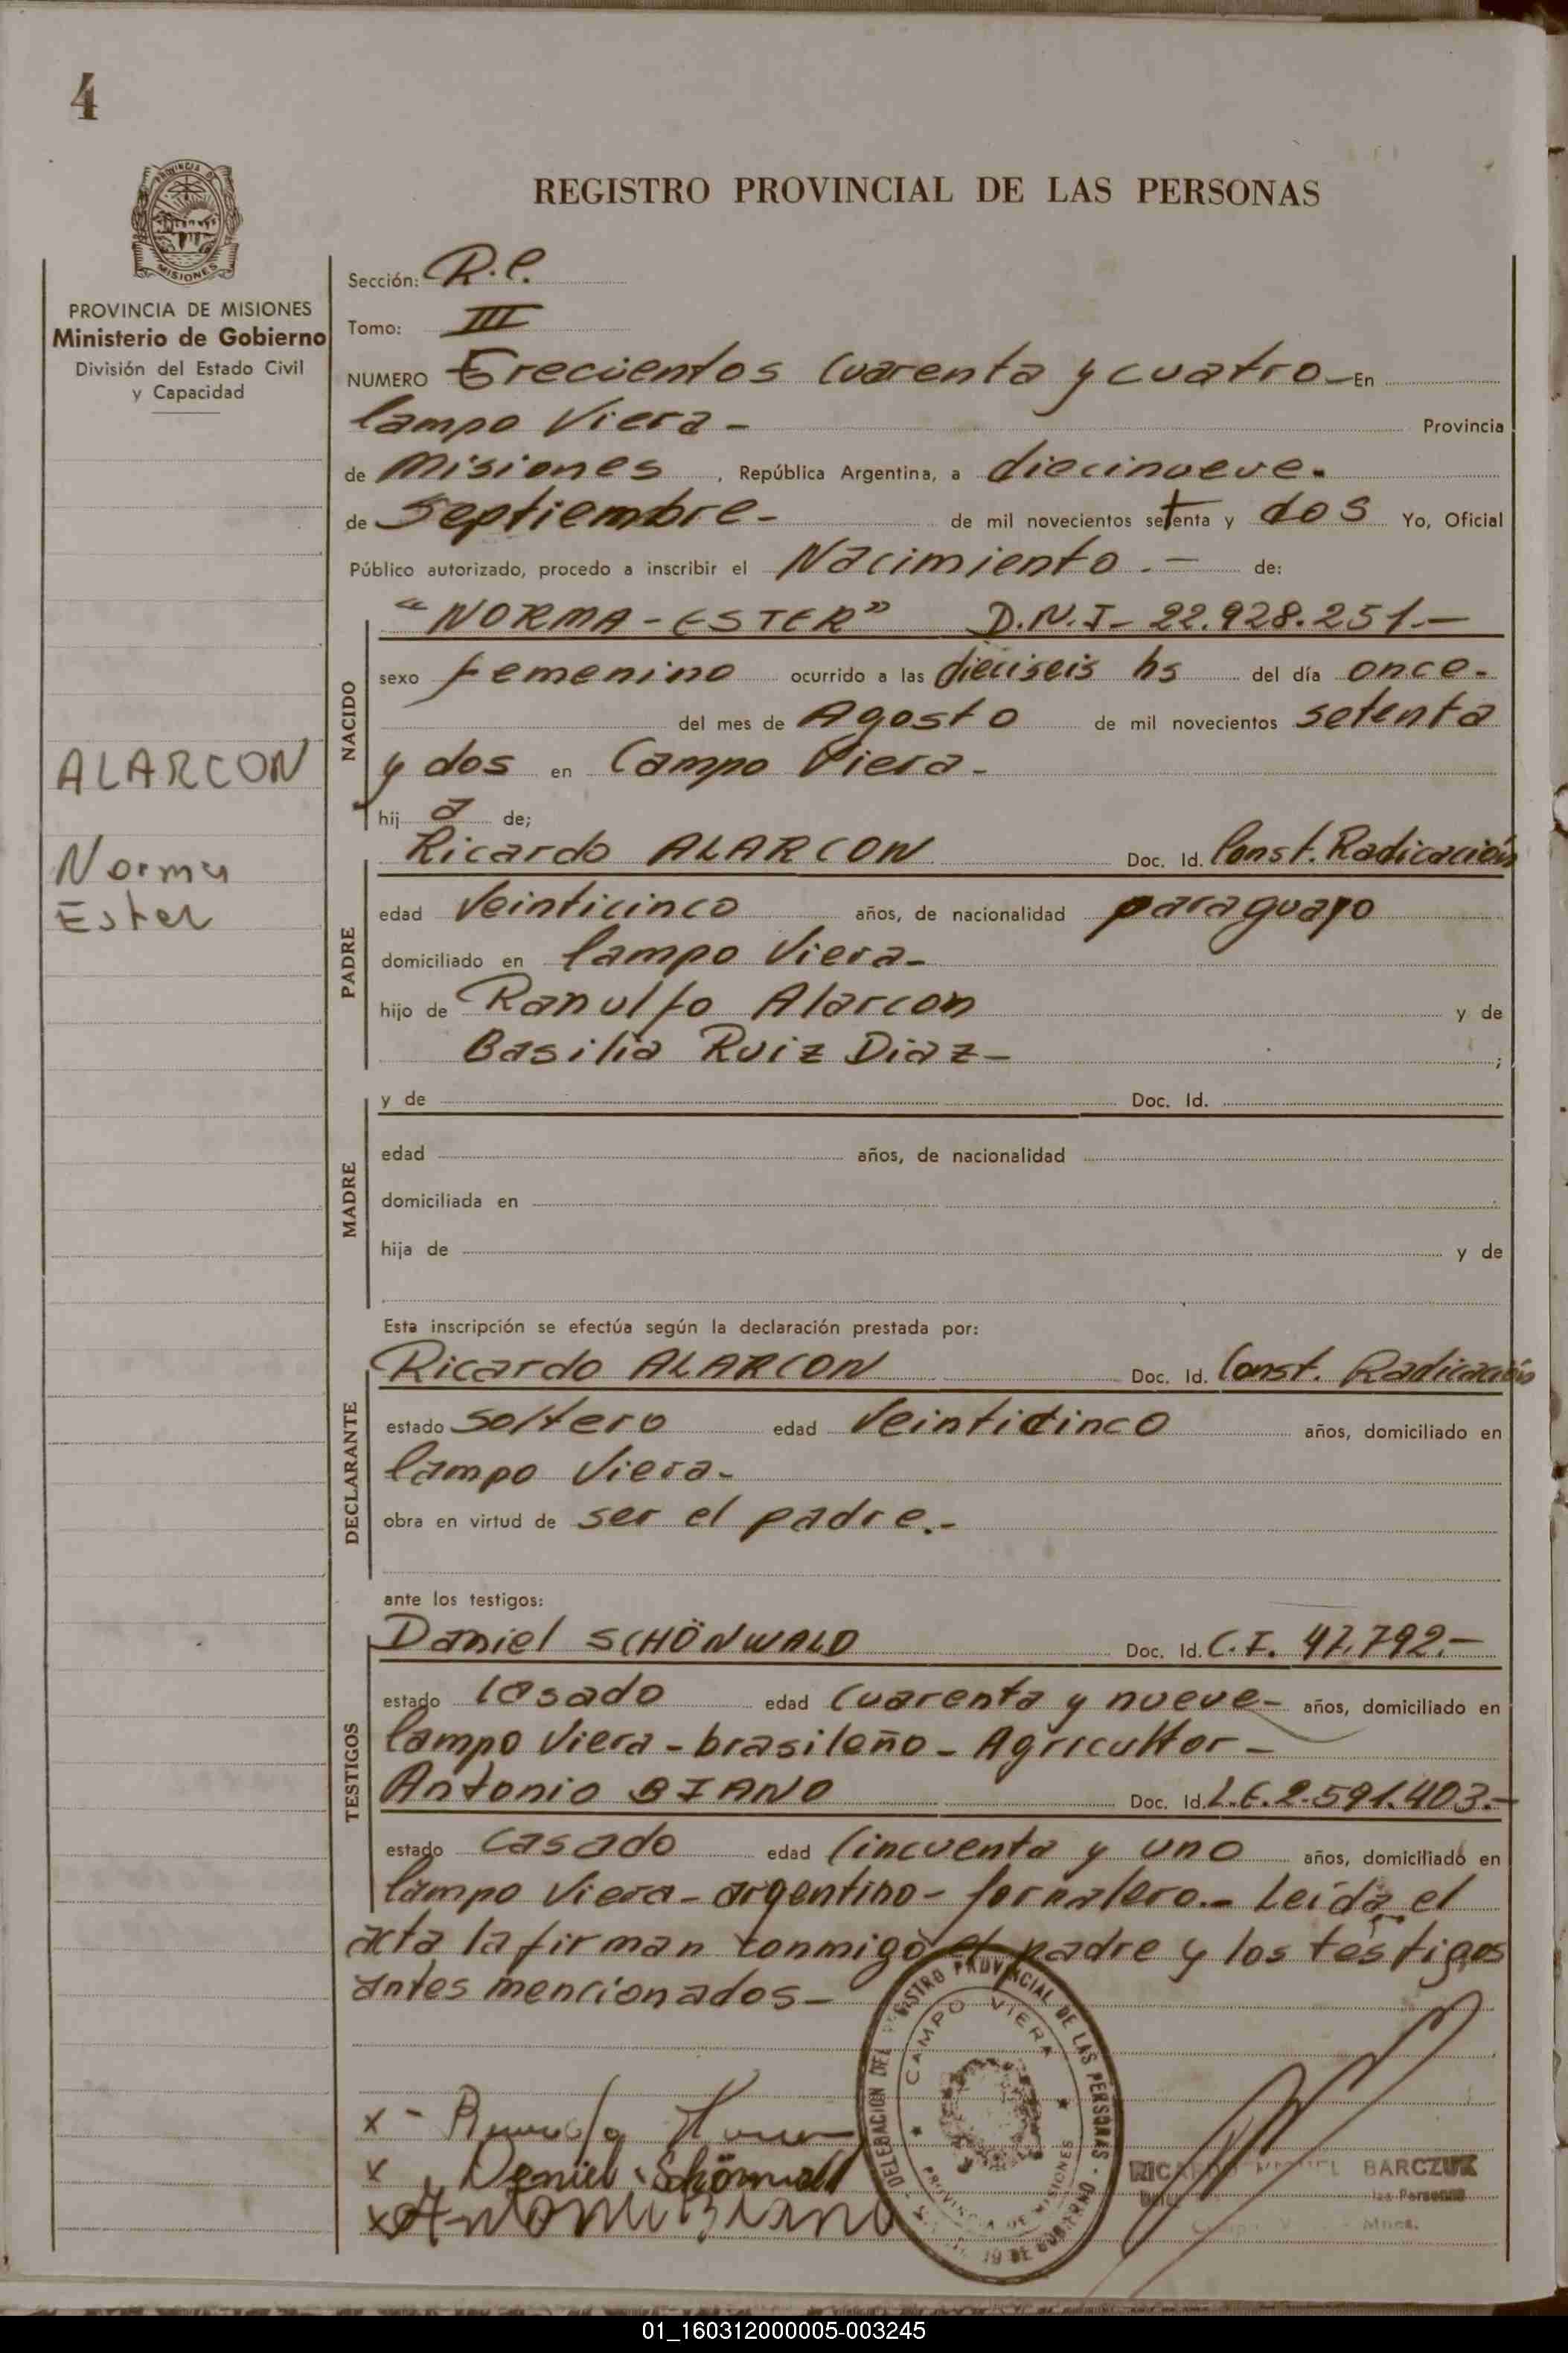 4
PROVINCIA DE
MISIONES
REGISTRO PROVINCIAL DE LAS PERSONAS
PROVINCIA DE MISIONES
Ministerio de Gobierno
División del Estado Civil
y Capacidad
ALARCON
Norma
Ester
Sección: R.C.
Tomo: III
NUMERO Trecientos Cuarenta y cuatro - En
Campo Viera - Provincia
de Misiones, República Argentina, a diecinueve.
de Septiembre - de mil novecientos setenta y dos Yo, Oficial
Público autorizado, procedo a inscribir el Nacimiento . - de:
NACIDO
"NORMA - ESTER" D.N.I - 22.928.251.-
sexo femenino ocurrido a las dieciseis hs del día once -
del mes de Agosto de mil novecientos setenta
y dos en Campo Viera -
hij a de;
PADRE
Ricardo ALARCON Doc. Id. Const. Radicación
edad Veinticinco años, de nacionalidad paraguayo
domiciliado en Campo Viera -
hijo de Ranulfo Alarcon y de
Basilia Ruiz Diaz - ;
MADRE
y de Doc. Id.
edad años, de nacionalidad
domiciliada en
hija de y de
Esta inscripción se efectúa según la declaración prestada por:
DECLARANTE
Ricardo ALARCON Doc. Id. Const. Radicación
estado soltero edad Veinticinco años, domiciliado en
Campo Viera -
obra en virtud de ser el padre. -
ante los testigos:
TESTIGOS
Daniel SCHÖNWALD Doc. Id. C.I. 47.792.-
estado Casado edad Cuarenta y nueve - años, domiciliado en
Campo Viera - brasileño - Agricultor -
Antonio BIANO Doc. Id. L.E. 2.591.403.-
estado casado edad Cincuenta y uno años, domiciliado en
Campo Viera - argentino - jornalero. - Leída el
acta la firman conmigo el padre y los testigos
antes mencionados -
DELEGACION DEL REGISTRO PROVINCIAL DE LAS PERSONAS
CAMPO VIERA
PROVINCIA DE MISIONES
x -
x Daniel Schönwald
x Antonio Biano
RICARDO MIGUEL BARCZUK
las Personas
Mnes.
01_160312000005-003245